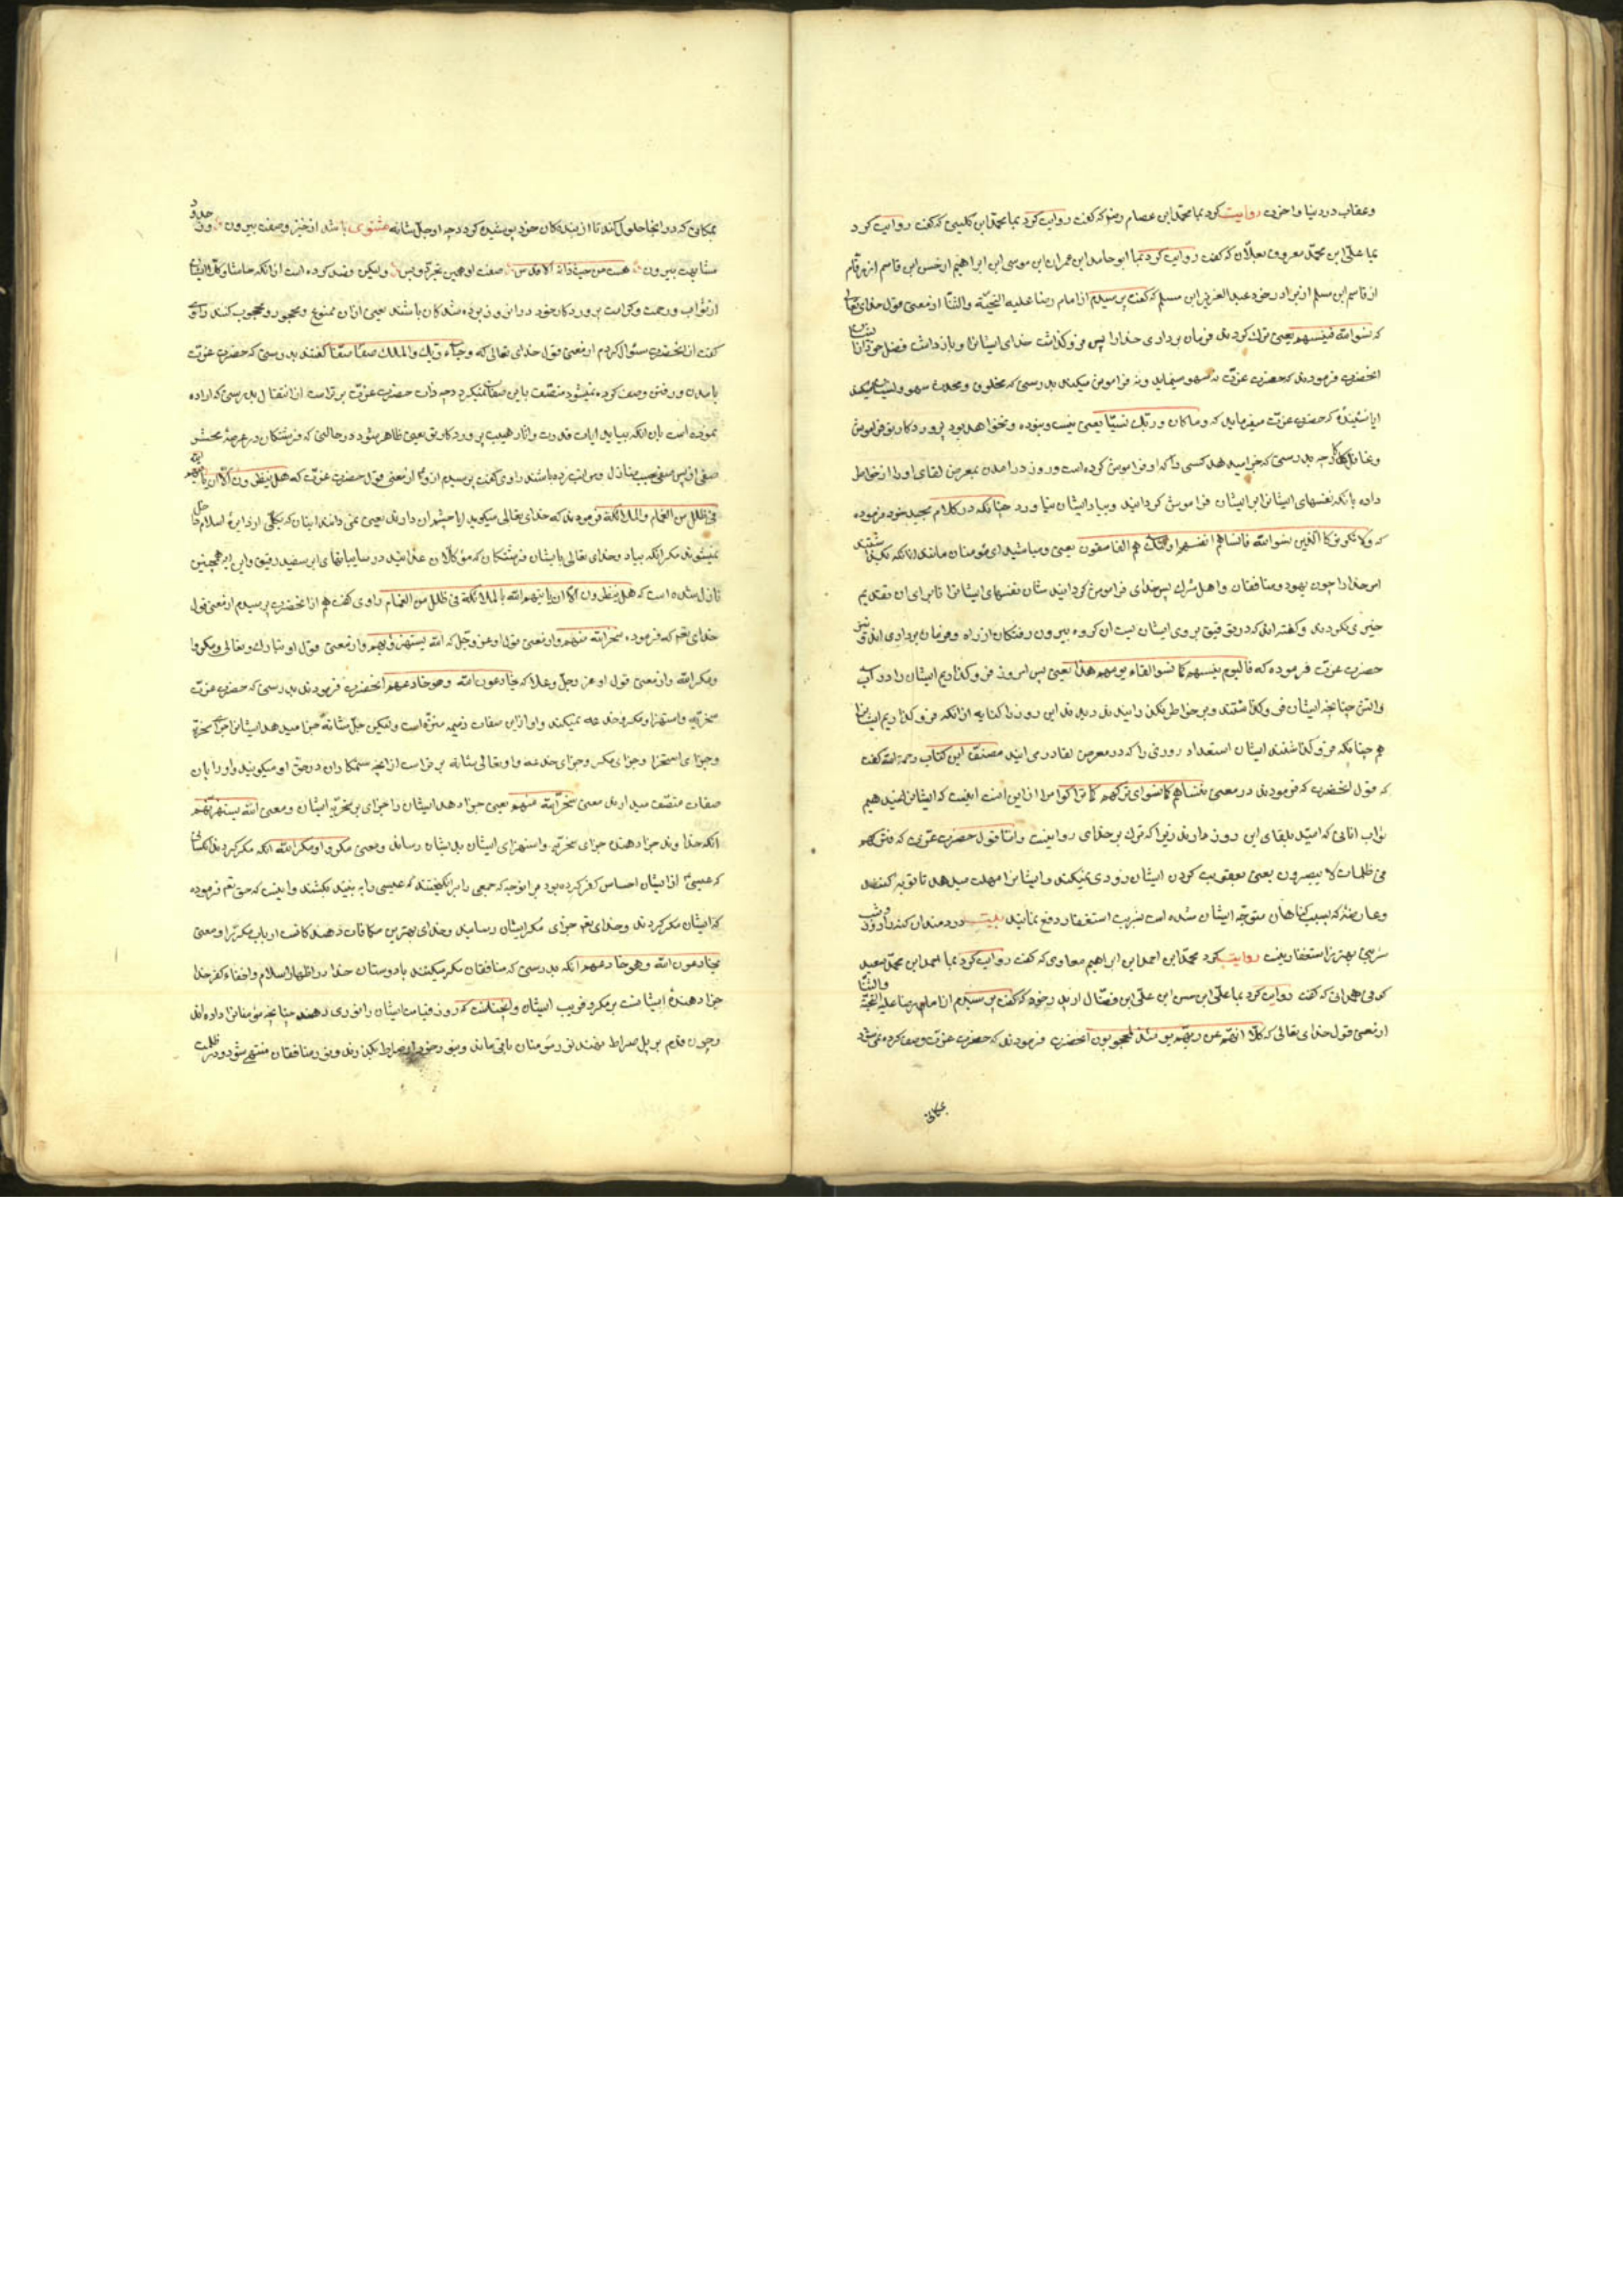 وعقاب در دنیا و اخرت روایت کرد بما محمد ابن عصام رضو که گفت روایت کرد بما محمد ابن کلینی که گفت روایت کرد
بما علی ابن محمد معروف بعلان که گفت روایت کرد بما ابو حامد ابن عمران ابن موسی ابن ابراهیم از حسن ابن قاسم از رقام
از قاسم ابن مسلم از برادر خود عبد العزیز ابن مسلم که گفت پرسیدم از امام رضا علیه التحیّة والثنا از معنی قول خدای تعالی
که نسوا الله فنسیهم یعنی ترک کردند فرمان برداری خدا را پس فرو گذاشت خدای ایشانرا و باز داشت فضل خود را از ایشان
انحضرت فرمودند که حضرت عزّت نه سهو مینماید و نه فراموش میکند بدرستی که مخلوق و محدث سهو و نسیان میکند
ایا نشنیدهٔ که حضرت عزّت میفرماید که وما کان ربّک نسیّا یعنی نیست و نبوده و نخواهد بود پرورد کار تو فراموش
و غافل چه بدرستی که جزا میدهد کسی را که او فراموش کرده است و روز در امدن بمعرض لقای او را از خاطر
داده بانکه نفسهای ایشانرا بر ایشان فراموش کردانید و بیاد ایشان نیاورد چنانکه در کلام مجید خود فرموده
که ولا تکونوا کالّذین نسوا الله فانساهم انفسهم اولئک هم الفاسقون یعنی و مباشید ای مومنان مانند انانکه بگذاشتند
امر خدا را چون یهود و منافقان و اهل شرک پس خدای فراموش کردانید شان نفسهای ایشانرا تا برای ان تقدیم
خیری نکردند
حضرت عزّت فرموده که فالیوم ننسیهم کما نسوا لقاء یومهم هذا یعنی پس امروز فرو گذاریم ایشانرا در
واتش چنانچه ایشان فرو گذاشتند و بر خاطر نکذرانیدند دیدند این روز را کنایه از انکه فرو گذاریم ایشانرا
هم چنانکه فرو گذاشتند ایشان استعداد روزی را که در معرض لقا در می ایند مصنف این کتاب رحمة الله گفت
که قول انحضرت که فرمودند در معنی ننساهم کما نسوا ای نترکهم کما ترکوا مراد از این انست که ایشانرا نمیدهیم
ثواب انانی که امید بلقای این روز دارند زیرا که ترک بر خدای روا نیست و امّا قول حضرت عزّت که فترکهم
فی ظلمات لا یبصرون یعنی بعقوبت کردن ایشان زودی نمیکند و ایشانرا مهلت میدهد تا توبه کنند
و عارضهٔ که بسبب کناهان متوجّه ایشان شده است بشربت استغفار دفع نمایند بیت دردمندان کنه را روز و شب
شربتی بهتر ز استغفار نیست روایت کرد محمد ابن احمد ابن ابراهیم معاوی که گفت روایت کرد بما احمد ابن محمد سعید
کوفی همدانی که گفت روایت کرد بما علی ابن حسن ابن علی ابن فضّال از پدر خود که گفت پرسیدم از امام رضا علیه التحیة والثنا
از معنی قول خدای تعالی که کلّا انّهم عن ربّهم یومئذ لمحجوبون انحضرت فرمودند که حضرت عزّت وصف کرده نمیشود
بمکانی
بمکانی که در انجا حلول کند تا از بندکان خود پوشیده کردد چه او جلّ شانه مثنوی باشد از حیّز وصف بیرون وز حدود
مشابهت بیرون هست من حیث ذاته الاقدس صفت او همین تجرّد و بس ولیکن قصد کرده است از انکه
از ثواب و رحمت و کرامت پرورد کار خود در انروز پوشیده شدکان باشند یعنی ازان ممنوع و مهجور و محجوب کنند راوی
گفت از انحضرت سئوال کردم از معنی قول خدای تعالی که وجاء ربّک والملک صفّا صفّا گفتند بدرستی که حضرت عزّت
بامدن و رفتن وصف کرده نمیشود متصّف باین صفات نمیکردد چه ذات حضرت عزّت برتر است از انتقال بدرستی که اراده
نموده است بان انکه بیاید ایات قدرت و اثار هیبت پرورد کار تو یعنی ظاهر شود در حالتی که فرشتکان در عرصهٔ محشر
صفی از پس صفی بحسب منازل و مراتب زده باشند راوی گفت پرسیدم از معنی قول حضرت عزّت که هل ینظرون الّا ان یاتیهم الله
فی ظلل من الغمام والملائکة فرمودند که خدای تعالی میکوید ایا چشم ان دارند یعنی نمی دانند اینان که
نمیشوند مکر انکه بیاد خدای تعالی بایشان فرشتکان که موکّلان عذابند در سایبانهای ابر سفید رقیق و این ایه همچنین
نازل شده است که هل ینظرون الّا ان یاتیهم الله بالملائکة فی ظلل من الغمام راوی گفت هم از انحضرت پرسیدم از معنی قول
خدای تعم که فرموده سخر الله منهم و از معنی قول او عز و جل که الله یستهزئ بهم و از معنی قول او تبارک و تعالی ومکروا
ومکر الله و از معنی قول او عز و جل و علا که یخادعون الله وهو خادعهم انحضرت فرمودند بدرستی که حضرت عزّت
سخریّه و استهزا و مکر و خدعه نمیکند و او ازین صفات ذمیمه منزّه است ولیکن جلّ شانه جزا میدهد ایشانرا جزای سخریّه
و جزای استهزا و جزای مکر و جزای خدعه و او تعالی شانه برتر است از انچه ستمکاران در حق او میکویند و او را بان
صفات متصّف میدارند معنی سخر الله منهم یعنی جزا دهد ایشان را جزای بر سخریّه ایشان و معنی الله یستهزئ بهم
انکه خداوند جزا دهنده جزای سخریّه و استهزای ایشان بدیشان رساند و معنی مکروا ومکر الله انکه مکر کردند کسانی
که عیسیٰ از ایشان احساس کفر کرده بود بر انوجه که جمعی را برانکیختند که عیسی را بکشند و اینست که حق تعم فرموده
که ایشان مکر کردند و خدای تعم جزای مکر ایشان رسانید و خدای بهترین مکافات دهندکانست ارباب مکر را و معنی
یخادعون الله وهو خادعهم انکه بدرستی که منافقان مکر میکنند با دوستان خدا در اظهار اسلام و اخفاء کفر خدا
جزا دهندهٔ ایشانست بر مکر و فریب ایشان و انچنانست که روز قیامت ایشان را نوری دهند چنانچه مؤمنانرا داده اند
و چون قدم بر پل صراط نهند نور مؤمنان باقی ماند و بنور خود از صراط بکذرند و نور منافقان منتهی شود و در ظلمت